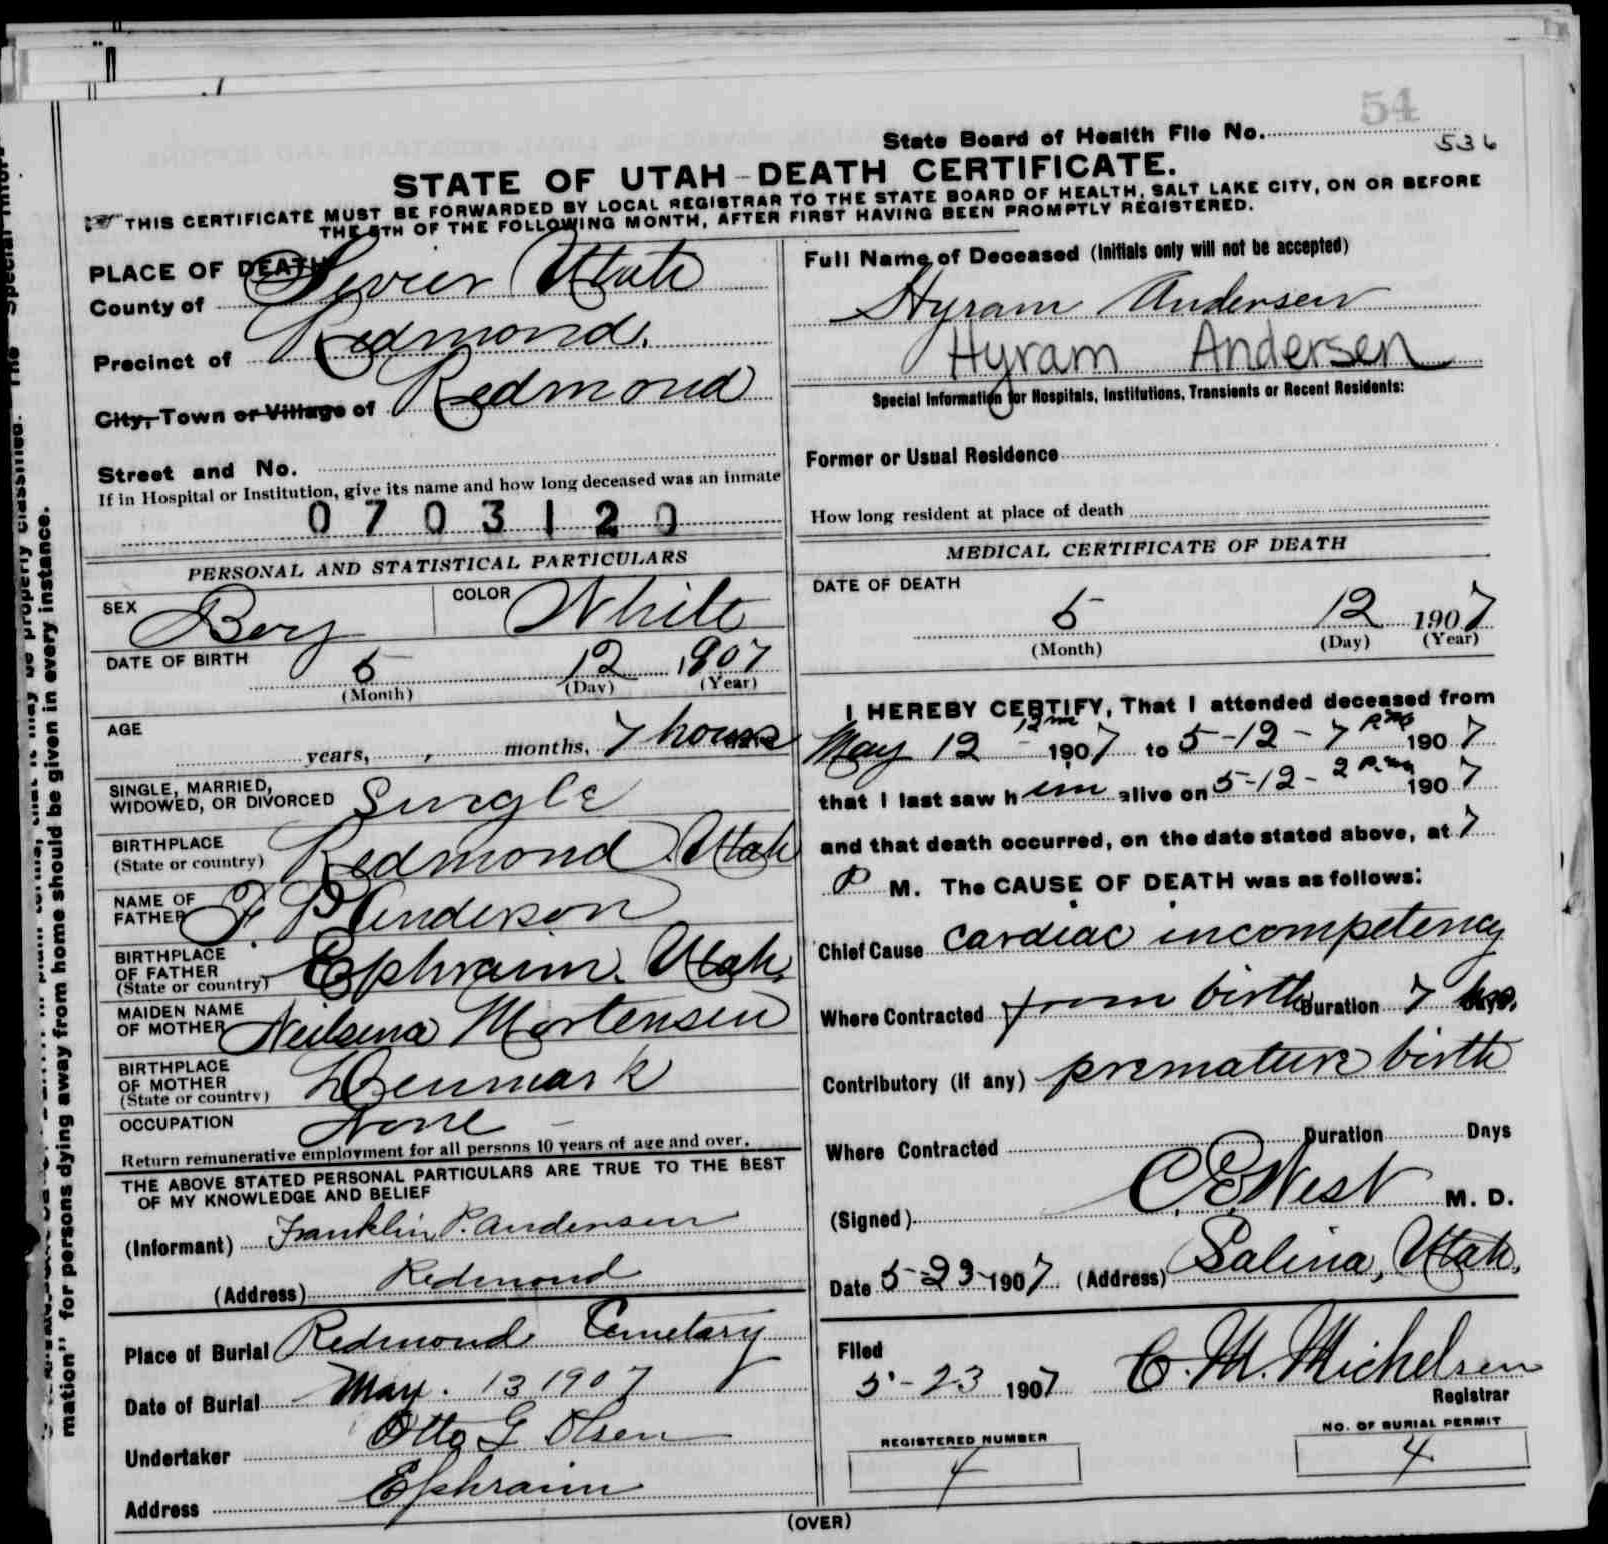 54
State Board of Health File No. 536
STATE OF UTAH-DEATH CERTIFICATE.
THIS CERTIFICATE MUST BE FORWARDED BY LOCAL REGISTRAR TO THE STATE BOARD OF HEALTH, SALT LAKE CITY, ON OR BEFORE
THE 5TH OF THE FOLLOWING MONTH, AFTER FIRST HAVING BEEN PROMPTLY REGISTERED.
PLACE OF DEATH
County of Sevier Utah
Precinct of Redmond.
City, Town or Village of Redmond
Street and No.
If in Hospital or Institution, give its name and how long deceased was an inmate
0703120
PERSONAL AND STATISTICAL PARTICULARS
SEX Boy COLOR White
DATE OF BIRTH 5 12 1907
(Month) (Day) (Year)
AGE years, months, 7 hours
SINGLE, MARRIED,
WIDOWED, OR DIVORCED Single
BIRTHPLACE
(State or country) Redmond Utah
NAME OF
FATHER F. P. Anderson
BIRTHPLACE
OF FATHER
(State or country) Ephraim. Utah,
MAIDEN NAME
OF MOTHER Neilsena Mortensen
BIRTHPLACE
OF MOTHER
(State or country) Denmark
OCCUPATION None
Return remunerative employment for all persons 10 years of age and over.
THE ABOVE STATED PERSONAL PARTICULARS ARE TRUE TO THE BEST
OF MY KNOWLEDGE AND BELIEF
(Informant) Franklin P. Andersen
(Address) Redmond
Place of Burial Redmond Cemetary
Date of Burial May. 13 1907
Undertaker Otto G Olsen
Address Ephraim
Full Name of Deceased (Initials only will not be accepted)
Hyram Andersen
Hyram Andersen
Special Information for Hospitals, Institutions, Transients or Recent Residents:
Former or Usual Residence
How long resident at place of death
MEDICAL CERTIFICATE OF DEATH
DATE OF DEATH
5 12 1907
(Month) (Day) (Year)
I HEREBY CERTIFY, That I attended deceased from
May 12 - 12 m 1907 to 5-12-7 P.M. 1907
that I last saw him alive on 5-12-2 P.m. 1907
and that death occurred, on the date stated above, at 7
P M. The CAUSE OF DEATH was as follows:
Chief Cause cardiac incompetency
Where Contracted from birth Duration 7 hrs.
Contributory (if any) premature birth
Where Contracted Duration Days
(Signed) C. E. West M. D.
Date 5-23-1907 (Address) Salina, Utah,
Filed
5-23 1907 C. M. Michelsen
Registrar
REGISTERED NUMBER
4
NO. OF BURIAL PERMIT
4
(OVER)
mation" for persons dying away from home should be given in every instance.